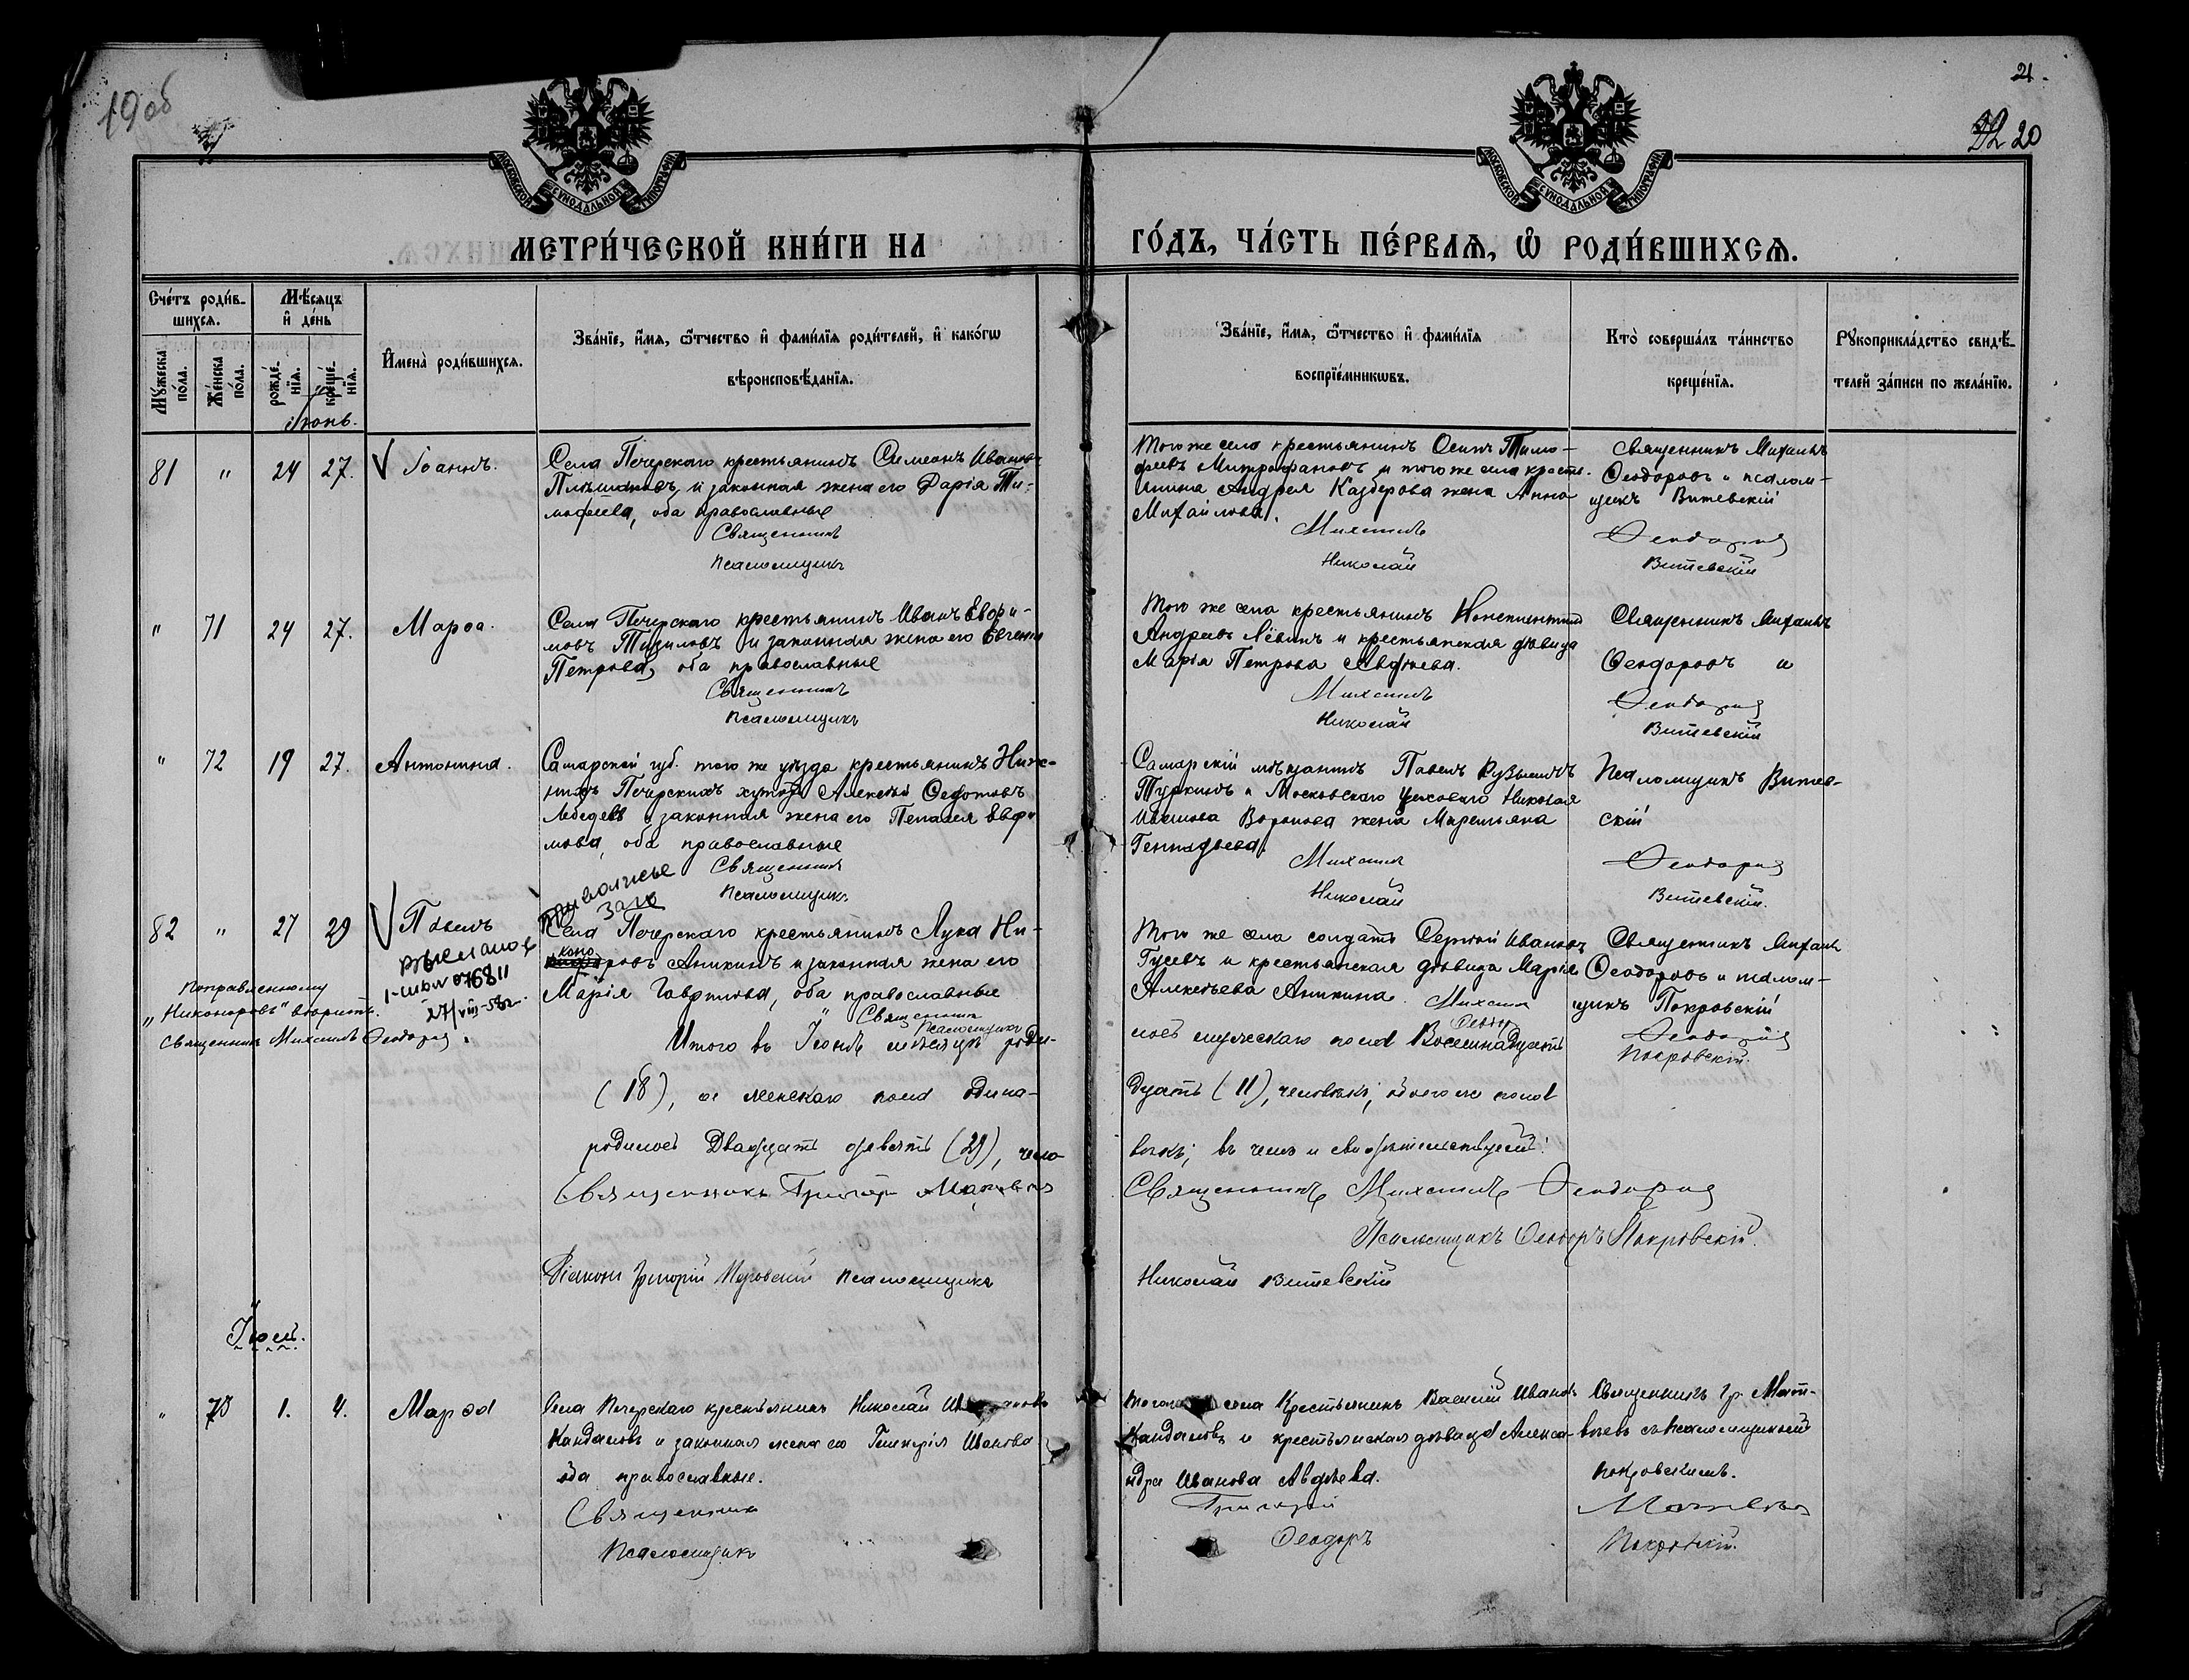 19 об
21.
20
МОСКОВСКОЙ СѴНОДАЛЬНОЙ ТИПОГРАФІИ
МОСКОВСКОЙ СѴНОДАЛЬНОЙ ТИПОГРАФІИ
МЕТРИ́ЧЕСКОЙ КНИ́ГИ НА
ГО́ДЪ, ЧА́СТЬ ПЕ́РВАЯ, Ѡ РОДИ́ВШИХСЯ.
Сче́тъ роди́в-
шихся.
Мѣ́сяцъ
и де́нь
Му́жеска по́ла.
Же́нска по́ла.
рожде́-нія.
креще́-нія.
Имена̀ роди́вшихся.
Зва́ніе, и́мя, ѻ҆́тчество и фами́лія роди́телей, и како́гѡ
вѣроисповѣ́данія.
Зва́ніе, и́мя, ѻ҆́тчество и фами́лія
воспріе́мникѡвъ.
Кто̀ соверша́лъ та́инство
креще́нія.
Рукоприкла́дство свидѣ́-
телей за́писи по жела́нію.
Іюнь.
81 " 24 27. Іоаннъ.
Села Печерскаго крестьянинъ Симеонъ Ивановъ
и законная жена его Дарія Ти-
мофеева, оба православные
Священникъ
Псаломщикъ
Того же села крестьянинъ Осипъ Тимо-
феевъ Митрофановъ и того же села кресть-
янина Андрея Казберова жена Анна
Михайлова.
Михаилъ
Николай
Священникъ Михаилъ
Ѳеодоровъ и псалом-
щикъ Витевскій
Ѳеодоровъ
Витевскій
" 71 24 27. Марѳа.
Села Печерскаго крестьянинъ Иванъ Евфи-
мовъ и законная жена его Евгенія
Петрова, оба православные
Священникъ
Псаломщикъ
Того же села крестьянинъ Константинъ
Андреевъ Лёвинъ и крестьянская дѣвица
Марія Петрова Авдѣева.
Михаилъ
Николай
Священникъ Михаилъ
Ѳеодоровъ и
Ѳеодоровъ
Витевскій
" 72 19 27. Антонина.
Самарской губ. того же уѣзда крестьянинъ Ниж-
нихъ Печерскихъ хуторъ Алексѣй Ѳедотовъ
Лебедевъ и законная жена его Пелагея Евфи
мова, оба православные
Священникъ
Псаломщикъ
Самарскій мѣщанинъ Павелъ Кузьминъ
Туркинъ и Московскаго цеховаго Николая
Воронова жена Маремьяна
Геннадьева.
Михаилъ
Николай
Псаломщикъ Витев-
скій
Ѳеодоровъ
Витевскій.
82 " 27 29 Павелъ
Приволжье
загс
27/VIII-58г.
Села Печерскаго крестьянинъ Лука Ни-
коно
ровъ Аникинъ и законная жена его
Марія Гаврилова, оба православные
Священникъ
Псаломщикъ
Того же села солдатъ Сергѣй Ивановъ
Гусевъ и крестьянская дѣвица Марія
Алексѣева Аникина.
Михаилъ
Ѳеодоръ
Священникъ Михаилъ
Ѳеодоровъ и псалом-
щикъ Покровскій
Ѳеодоровъ
Покровскій.
Поправленному
„Никоноровъ" вѣрить.
Священникъ Михаилъ Ѳеодоровъ.
Итого въ Іюнѣ мѣсяцѣ роди-
лось мужескаго пола Восемнадцать
(18), а женскаго пола одина-
дцать (11), человѣкъ; обоего же пола
родилось Двадцать девять (29), чело-
вѣкъ; въ чемъ и свидѣтельствуемъ:
Священникъ Григорій Матвѣевъ
Священникъ Михаилъ Ѳеодоровъ
Псаломщикъ Ѳеодоръ Покровскій.
Діаконъ Григорій Псаломщикъ
Николай Витевскій
Іюль.
" 73 1. 4. Марѳа
Села Печерскаго крестьянинъ Николай
Кандаловъ и законная жена его Гликерія Иванова
оба православные.
Священникъ
Псаломщикъ
села Крестьянинъ Василій Ивановъ
Кандаловъ и крестьянская дѣвица Алекса-
ндра Иванова Авдѣева.
Григорій
Ѳеодоръ
Священникъ Гр. Мат-
вѣевъ съ псаломщикомъ
Покровскимъ.
Матвѣевъ
Покровскій.